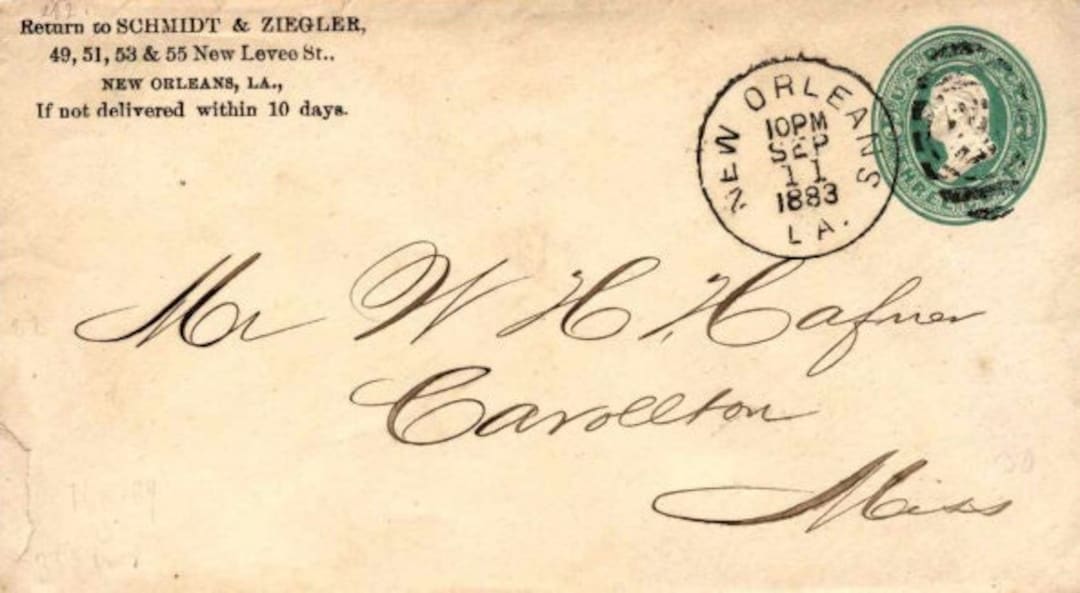 Return to SCHMIDT & ZIEGLER,
49, 51, 53 & 55 New Levee St.,
NEW ORLEANS, LA.,
If not delivered within 10 days.
NEW ORLEANS
10PM
SEP
11
1883
LA.
U.S.
THREE
Mr W H Hafner
Carollton
Miss